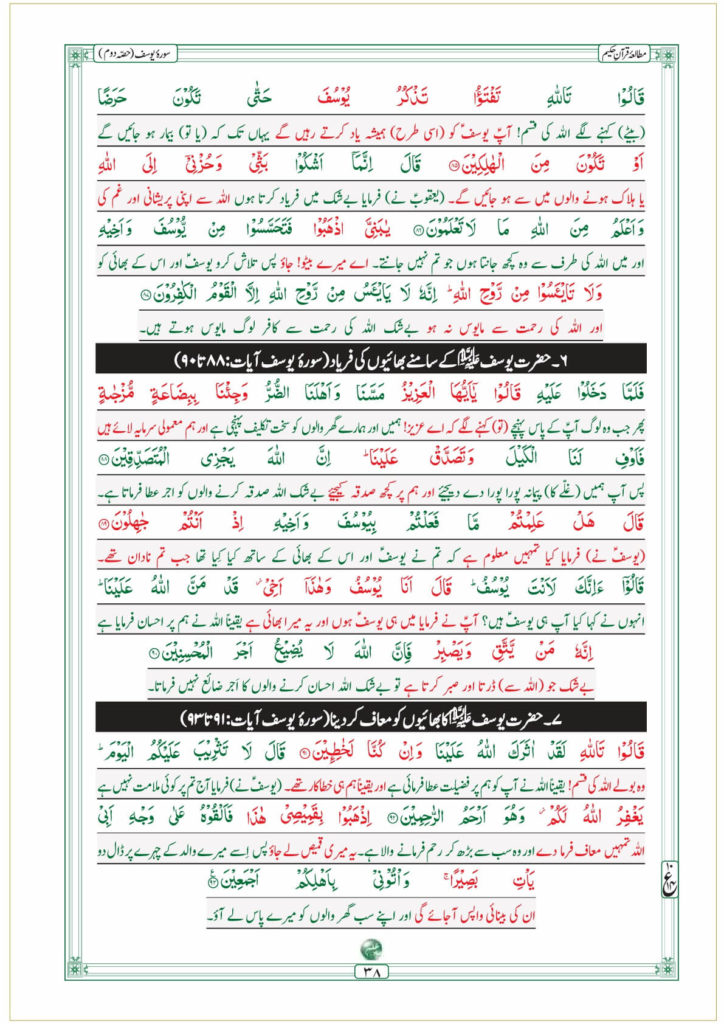 مطالعۂ قرآنِ حکیم
سورۂ یوسف (حصّہ دوم)
قَالُوْا تَاللّٰهِ تَفْتَؤُا تَذْكُرُ يُوْسُفَ حَتّٰى تَكُوْنَ حَرَضًا
(بیٹے) کہنے لگے اللہ کی قسم! آپؑ یوسفؑ کو (اسی طرح) ہمیشہ یاد کرتے رہیں گے یہاں تک کہ (یا تو) بیمار ہو جائیں گے
اَوْ تَكُوْنَ مِنَ الْهٰلِكِيْنَ ۝۸۵ قَالَ اِنَّمَاۤ اَشْكُوْا بَثِّيْ وَحُزْنِيْۤ اِلَى اللّٰهِ
یا ہلاک ہونے والوں میں سے ہو جائیں گے۔ (یعقوبؑ نے) فرمایا بےشک میں فریاد کرتا ہوں اللہ سے اپنی پریشانی اور غم کی
وَاَعْلَمُ مِنَ اللّٰهِ مَا لَا تَعْلَمُوْنَ ۝۸۶ يٰبَنِيَّ اذْهَبُوْا فَتَحَسَّسُوْا مِنْ يُّوْسُفَ وَاَخِيْهِ
اور میں اللہ کی طرف سے وہ کچھ جانتا ہوں جو تم نہیں جانتے۔ اے میرے بیٹو! جاؤ پس تلاش کرو یوسفؑ اور اس کے بھائی کو
وَلَا تَايْـَٔسُوْا مِنْ رَّوْحِ اللّٰهِ ؕ اِنَّهٗ لَا يَايْـَٔسُ مِنْ رَّوْحِ اللّٰهِ اِلَّا الْقَوْمُ الْكٰفِرُوْنَ ۝۸۷
اور اللہ کی رحمت سے مایوس نہ ہو بےشک اللہ کی رحمت سے کافر لوگ مایوس ہوتے ہیں۔
۶۔ حضرت یوسف علیہ السلام کے سامنے بھائیوں کی فریاد (سورۂ یوسف آیات: ۸۸ تا ۹۰)
فَلَمَّا دَخَلُوْا عَلَيْهِ قَالُوْا يٰۤاَيُّهَا الْعَزِيْزُ مَسَّنَا وَاَهْلَنَا الضُّرُّ وَجِئْنَا بِبِضَاعَةٍ مُّزْجٰىةٍ
پھر جب وہ لوگ آپؑ کے پاس پہنچے (تو) کہنے لگے کہ اے عزیز! ہمیں اور ہمارے گھر والوں کو سخت تکلیف پہنچی ہے اور ہم معمولی سرمایہ لائے ہیں
فَاَوْفِ لَنَا الْكَيْلَ وَتَصَدَّقْ عَلَيْنَا ؕ اِنَّ اللّٰهَ يَجْزِي الْمُتَصَدِّقِيْنَ ۝۸۸
پس آپ ہمیں (غلّے کا) پیمانہ پورا پورا دے دیجیئے اور ہم پر کچھ صدقہ کیجیئے بےشک اللہ صدقہ کرنے والوں کو اجر عطا فرماتا ہے۔
قَالَ هَلْ عَلِمْتُمْ مَّا فَعَلْتُمْ بِيُوْسُفَ وَاَخِيْهِ اِذْ اَنْتُمْ جٰهِلُوْنَ ۝۸۹
(یوسفؑ نے) فرمایا کیا تمہیں معلوم ہے کہ تم نے یوسفؑ اور اس کے بھائی کے ساتھ کیا کِیا تھا جب تم نادان تھے۔
قَالُوْۤا ءَاِنَّكَ لَاَنْتَ يُوْسُفُ ؕ قَالَ اَنَا يُوْسُفُ وَهٰذَاۤ اَخِيْ ؗ قَدْ مَنَّ اللّٰهُ عَلَيْنَا ؕ
انہوں نے کہا کیا آپ ہی یوسفؑ ہیں؟ آپؑ نے فرمایا میں ہی یوسفؑ ہوں اور یہ میرا بھائی ہے یقیناً اللہ نے ہم پر احسان فرمایا ہے
اِنَّهٗ مَنْ يَّتَّقِ وَيَصْبِرْ فَاِنَّ اللّٰهَ لَا يُضِيْعُ اَجْرَ الْمُحْسِنِيْنَ ۝۹۰
بےشک جو (اللہ سے) ڈرتا اور صبر کرتا ہے تو بےشک اللہ احسان کرنے والوں کا اَجر ضائع نہیں فرماتا۔
۷۔ حضرت یوسف علیہ السلام کا بھائیوں کو معاف کر دینا (سورۂ یوسف آیات: ۹۱ تا ۹۳)
قَالُوْا تَاللّٰهِ لَقَدْ اٰثَرَكَ اللّٰهُ عَلَيْنَا وَاِنْ كُنَّا لَخٰطِـِٕيْنَ ۝۹۱ قَالَ لَا تَثْرِيْبَ عَلَيْكُمُ الْيَوْمَ ؕ
وہ بولے اللہ کی قسم! یقیناً اللہ نے آپ کو ہم پر فضیلت عطا فرمائی ہے اور یقیناً ہم ہی خطاکار تھے۔ (یوسفؑ نے) فرمایا آج تم پر کوئی ملامت نہیں ہے
يَغْفِرُ اللّٰهُ لَكُمْ ؗ وَهُوَ اَرْحَمُ الرّٰحِمِيْنَ ۝۹۲ اِذْهَبُوْا بِقَمِيْصِيْ هٰذَا فَاَلْقُوْهُ عَلٰى وَجْهِ اَبِيْ
اللہ تمہیں معاف فرما دے اور وہ سب سے بڑھ کر رحم فرمانے والا ہے۔ یہ میری قمیص لے جاؤ پس اِسے میرے والد کے چہرے پر ڈال دو
يَاْتِ بَصِيْرًا ۚ وَاْتُوْنِيْ بِاَهْلِكُمْ اَجْمَعِيْنَ ۝۹۳
ان کی بینائی واپس آجائے گی اور اپنے سب گھر والوں کو میرے پاس لے آؤ۔
۳۸